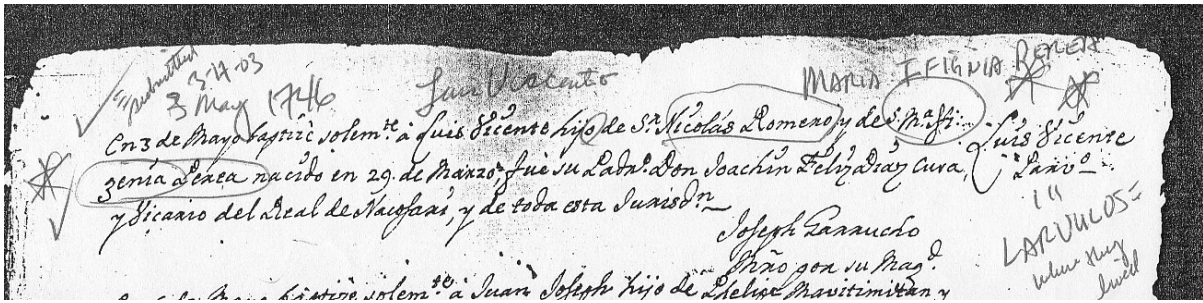 "submitted
3-17-03
3 May 1746
Luis Vicente
MARIA IFIGNIA PEREA
En 3 de Mayo baptizè solem.te â Luis Vicente hijo de S.r Nicolàs Romero, y de S. M.a Ifi-
genia Perea nacido en 29. de Marzo, fue su Padr.o Don Joachin Feliz Diaz Cura,
y Vicario del Real de Nacosari, y de toda esta Jurisd.n
Luis Vicente
Parv.o
Joseph Garrucho
Mrõ por su Mag.d
LARVULOS =
where they
lived
de Mayo baptize solem.te â Juan Joseph hijo de Phelipe y